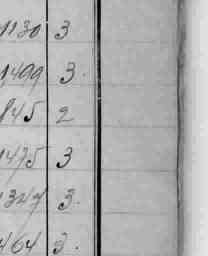 1130 3
1499 3.
845 2
1475 3
1347 3.
464 3.